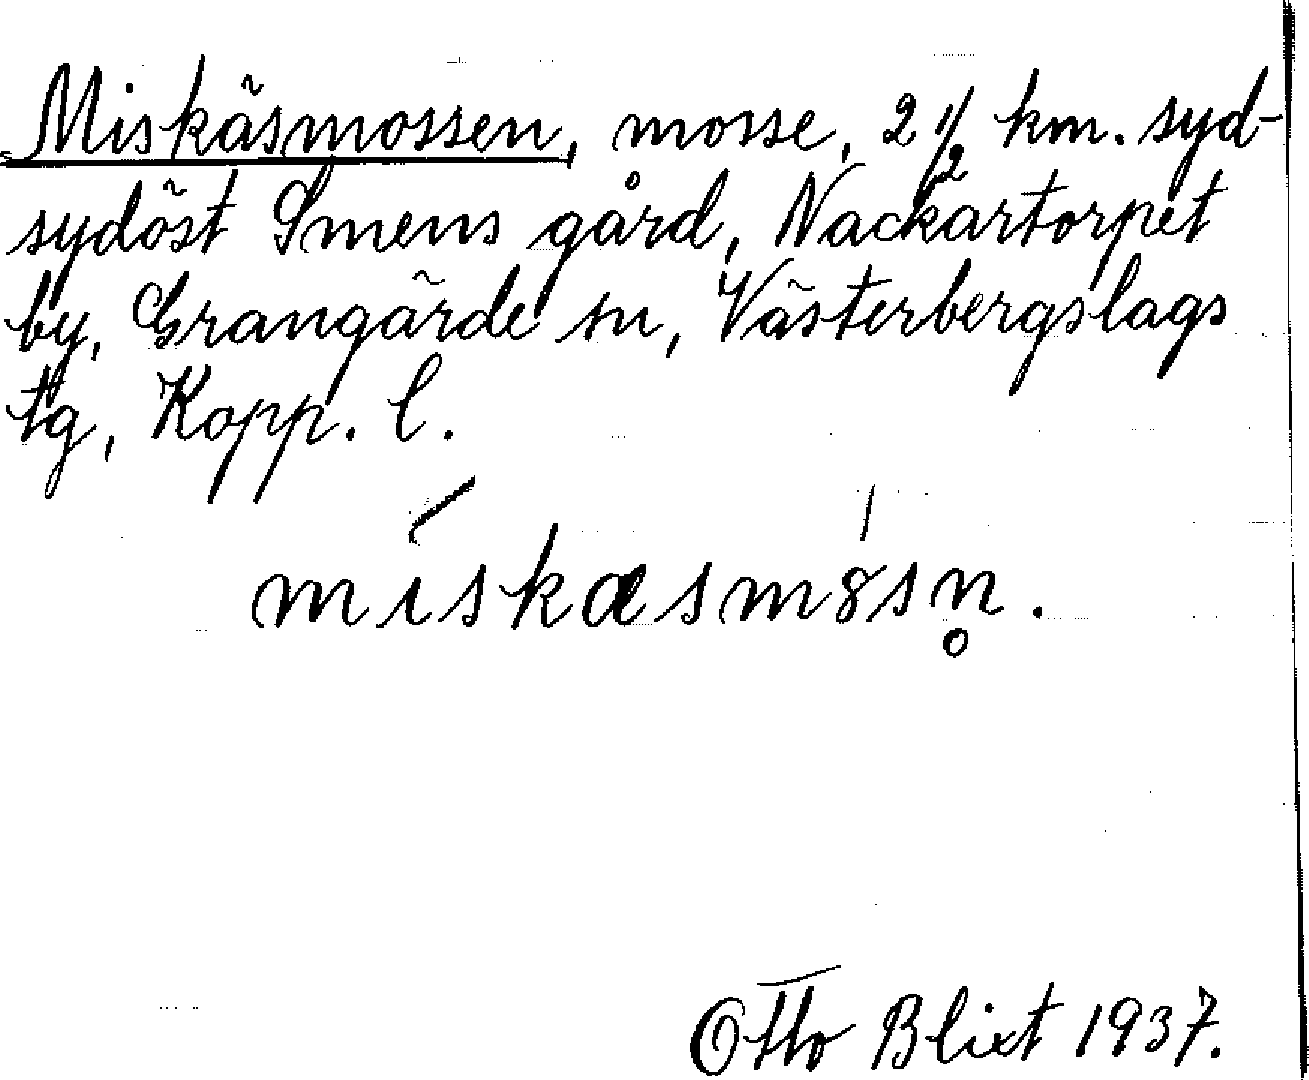 Miskäsmossen, mosse, 2 1/2 km. syd-
sydöst Smens gård, Nackartorpet
by, Grangärde sn, Västerbergslags
tg, Kopp. l.
miskæsm8sn̥.
Otto Blixt 1937.